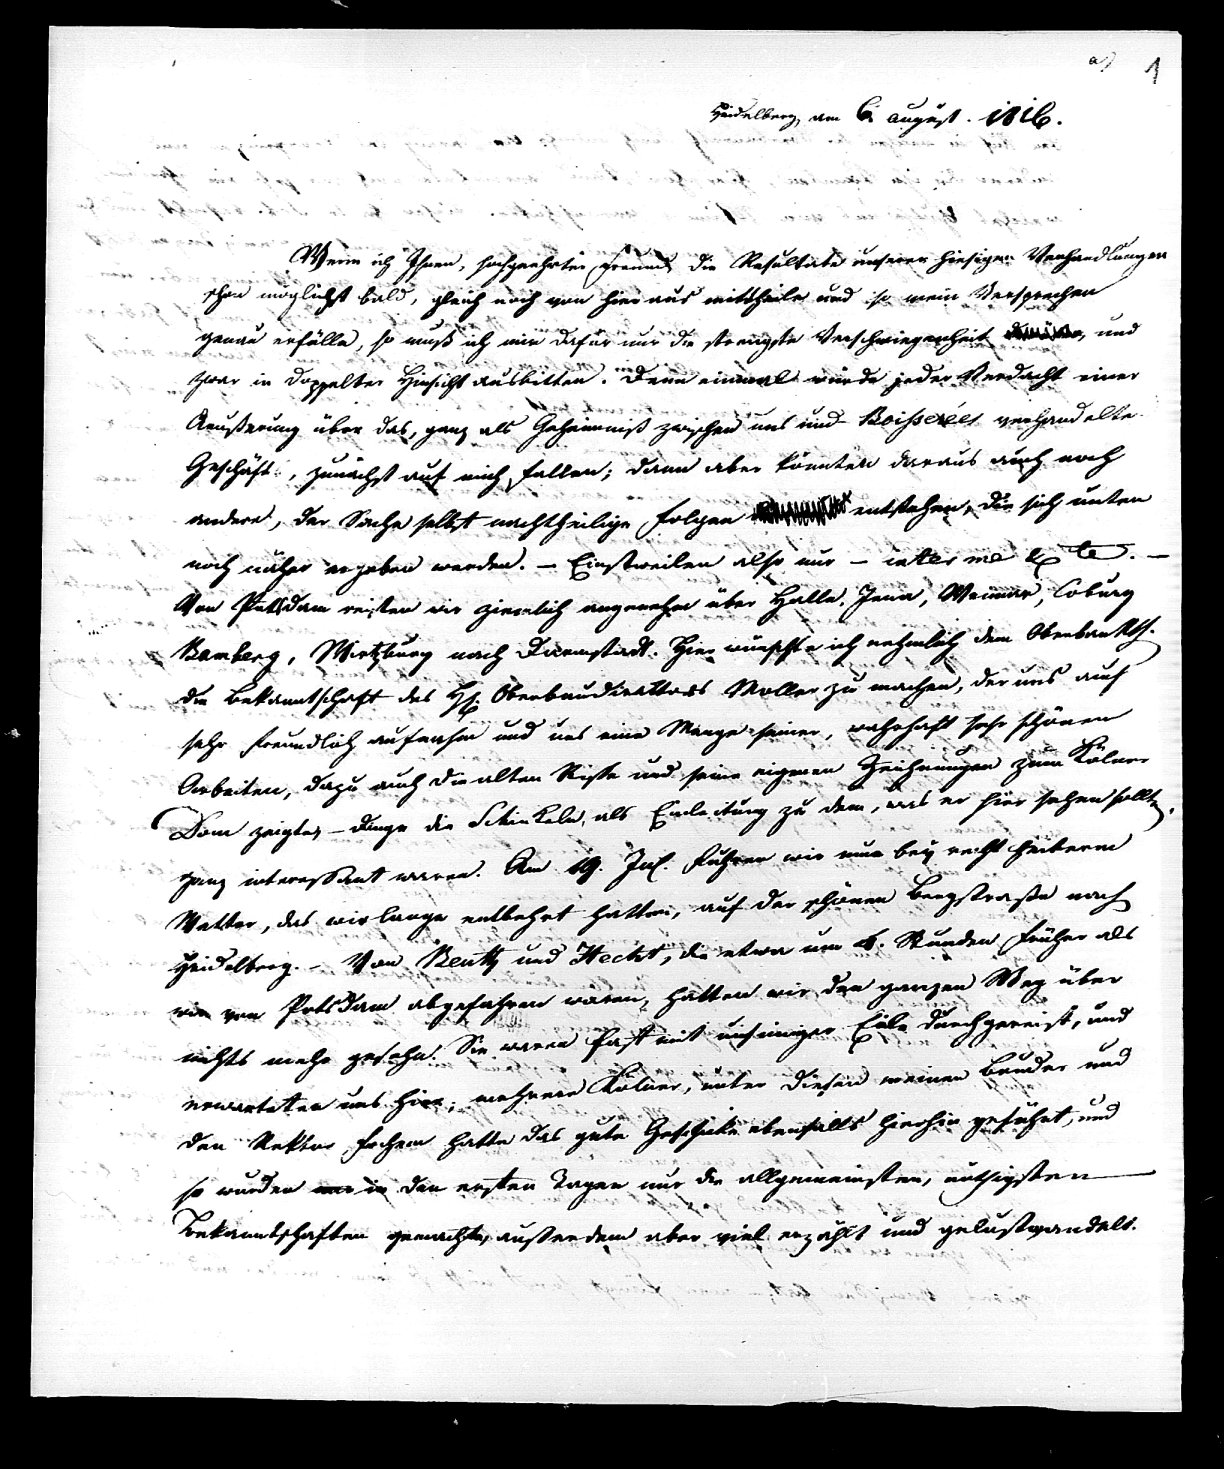 a) 1
Heidelberg, am 6. august. 1816.
Wenn ich Ihnen, hochgeehrter Freund, die Resultate unserer hiesigen Verhandlungen
schon möglichst bald, gleich noch von hier aus mittheile und so mein Versprechen
genau erfülle, so muß ich mir dafür nur die strengste Verschwiegenheit, und
zwar in doppelter Hinsicht ausbitten. Denn einmal würde jeder Verdacht einer
Aeußerung über das, ganz als Geheimniß zwischen uns und Boisserées verhandelte
Geschäft, zunächst auf mich fallen; dann aber könnten daraus auch noch
andere, der Sache selbst nachtheilige Folgen entstehen, die sich unten
noch näher ergeben werden. – Einstweilen also nur – inter me & te. –
Von Potsdam reisten wir ziemlich angenehm über Halle, Jena, Weimar, Coburg
Bamberg, Wirtzburg nach Darmstadt. Hier wünschte ich nehmlich dem Oberbaurth.
die Bekanntschaft des H. Oberbaudirektors Moller zu machen, der uns auch
sehr freundlich aufnahm und uns eine Menge seiner, wahrhaft sehr schönen
Arbeiten, dazu auch die alten Risse und seine eigenen Zeichnungen zum Kölner
Dom zeigte, – Dinge die Schinkeln, als Einleitung zu dem, was er hier sehen sollte,
ganz interessant waren. Am 19. Jul. fuhren wir nun bey recht heiterem
Wetter, das wir lange entbehrt hatten, auf der schönen Bergstraße nach
Heidelberg. – Von Beuth und Hecht, die etwa um 6. Stunden früher als
wir von Potsdam abgefahren waren, hatten wir den ganzen Weg über
nichts mehr gesehn. Sie waren fast mit unsinniger Eile durchgereist, und
erwarteten uns hier; mehrere Kölner, unter diesen meinen Bruder und
den Rektor Fochem hatte das gute Geschick ebenfalls hierhin geführt, und
so wurden in den ersten Tagen nur die allgemeinsten, nöthigsten
Bekanntschaften gemacht, außerdem aber viel erzählt und gelustwandelt.